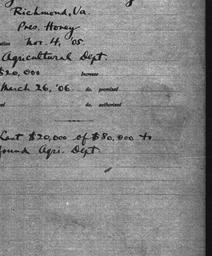 Richmond, Va.
Pres. Honey
Nov. 4, '05
Agricultural Dept.
$20,000 Increase
March 26, '06 do. promised
do. authorized
Last $20,000 of $80,000 to
found Agri. Dept.